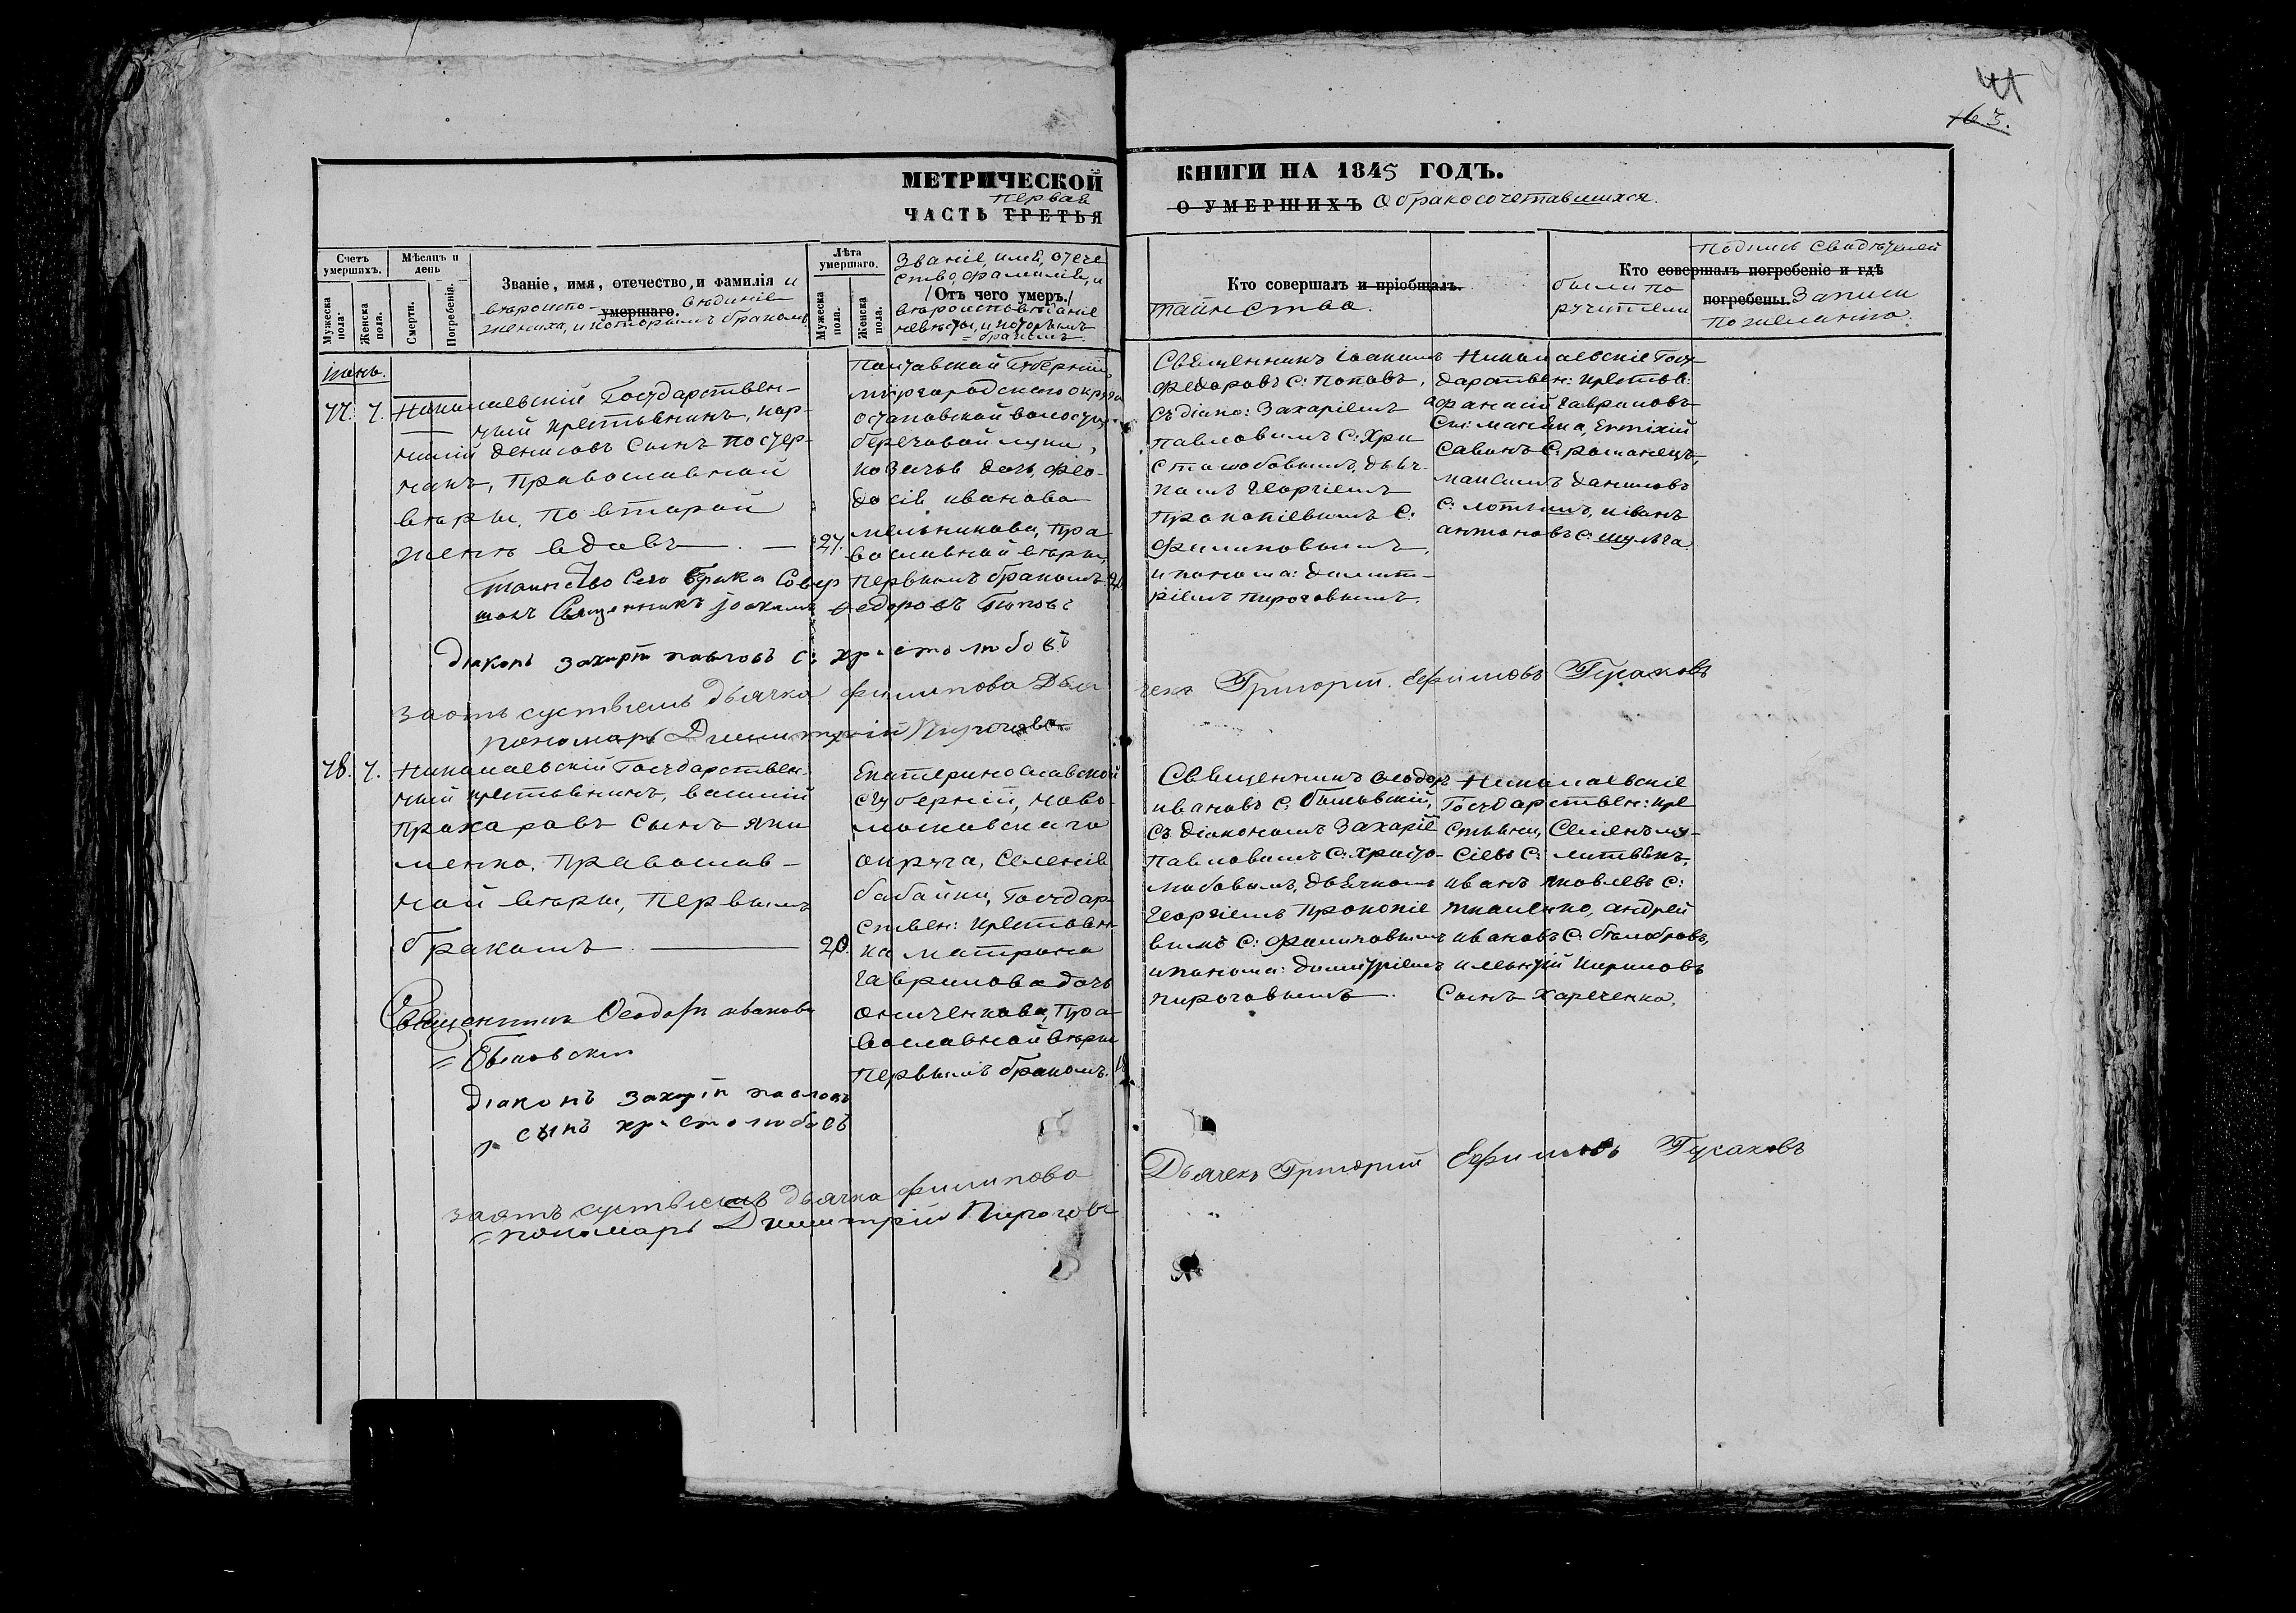 41
163.
МЕТРИЧЕСКОЙ
Первая
ЧАСТЬ ТРЕТЬЯ
КНИГИ НА 1845 ГОДЪ.
О УМЕРШИХЪ О бракосочетавшихся.
Счетъ умершихъ.
Мужеска пола.
Женска пола.
Мѣсяцъ и день
Смерти.
Погребенія.
Званіе, имя, отечество, и фамилія и
вѣроиспо- вѣданіе
умершаго.
жениха, и которымъ бракомъ.
Лѣта умершаго.
Мужеска пола.
Женска пола.
Званіе, имя, отече
ство, фамилія, и
Отъ чего умеръ.
вѣроисповѣданіе
невѣсты, и которымъ
бракомъ.
Кто совершалъ и пріобщалъ.
таинство.
Кто совершалъ погребеніе и гдѣ
погребены.
были по
ручители
Подпись свидѣтелей
Записи
по желанію.
іюнь.
77. 7. Николаевскій Государствен-
ный крестьянинъ, кор-
нилій Денисовъ Сынъ постер-
накъ, православной
вѣры, по второй
женѣ вдовъ — 27.
Полтавской Губерніи
миргородскаго округа
остаповской волости,
беречовой луки,
козачья дочь, Фео-
досія иванова
мельникова, пра
вославной вѣры,
первымъ бракомъ. 20
Священникъ іоакимъ
Федоровъ С: Поповъ,
съ діако: Захаріемъ
павловымъ С: Хри
столюбовымъ, дьяч-
комъ Георгіемъ
Прокопіевымъ С:
Филиповымъ,
и понома: Димит-
ріемъ Пироговымъ.
Николаевскіе Госу-
дарствен: крестья:
афанасій Гавриловъ
Сы: маківка, Евтихій
Савинъ С: романецъ,
максимъ даниловъ
С: лотышъ, иванъ
антоновъ С: шульга.
Таинство Сего брака Совер
шалъ Священникъ Іоакимъ Ѳедоровъ Поповъ
Діаконъ захарій павловъ С: христолюбовъ
За отъсуствіемъ дьячка филипова Дья
чекъ Григорій Ефимовъ Гусаковъ
пономарь Димитрій Пироговъ
78. 7. Николаевскій Государствен-
ный крестьянинъ, василій
Прохаровъ Сынъ яки
менко, православ-
ной вѣры, первымъ
бракомъ — 20.
Екатеринославской
губерніи, ново-
московскаго
округа, селенія
бабайки, Государ
ствен: крестьян
ка матрона
Гаврилова дочь
ониченкова, пра
вославной вѣры
первымъ бракомъ. 18
Священникъ Ѳеодоръ
ивановъ С: быковскій,
съ діакономъ Захаріе
павловымъ С: христо-
любовымъ, дьячкомъ
Георгіемъ Прокопіе
вымъ С: Филиповымъ
и понома: Димитріемъ
пироговымъ.
Николаевскіе
Государствен: кре
стьяни, Семенъ мо-
сіевъ С: литвинъ,
иванъ яковлевъ С:
ткаченко, андрей
ивановъ С: бѣлобровъ,
и леонтій Кириловъ
Сынъ Харченко.
Священникъ Ѳеодоръ ивановъ
Быковскій
Діаконъ захарій павловъ
сынъ христолюбовъ
За отъсуствіемъ дьячка филипова
Дьячекъ Григорій Ефимовъ Гусаковъ
пономарь Димитрій Пироговъ